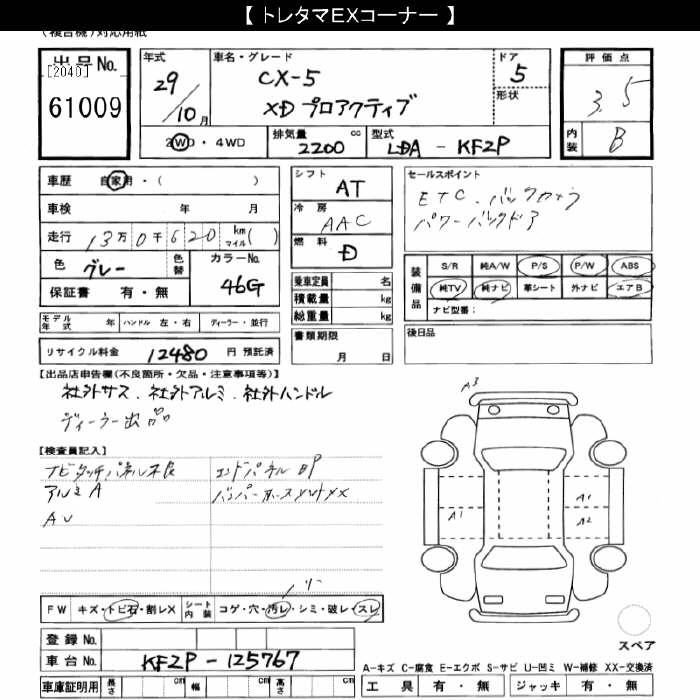 【 トレタマEXコーナー 】
(複合機)対応用紙
出品No.
[2040]
61009
年式
29/10月
車名・グレード
CX-5
XD プロアクティブ
ドア
5
形状
評価点
3.5
内装
B
2WD・4WD
排気量 2200 cc
型式 LDA - KF2P
車歴 自家用・( )
車検 年 月
走行 13万0千620 km マイル( )
色 グレー 色替
カラーNo. 46G
保証書 有・無
シフト AT
冷房 AAC
燃料 D
乗車定員 名
積載量 kg
総重量 kg
セールスポイント
ETC、バックカメラ
パワーバックドア
装備品
S/R 純A/W P/S P/W ABS
純TV 純ナビ 革シート 外ナビ エアB
ナビ型番:
モデル年式 年 ハンドル 左・右 ディーラー・並行
書類期限
月 日
後日品
リサイクル料金 12480 円 預託済
【出品店申告欄(不良箇所・欠品・注意事項等)】
社外サス、社外アルミ、社外ハンドル
ディーラー出品
【検査員記入】
ナビタッチパネル不良
アルミA
AU
エンドパネルBP
A3
A1
A1
A2
FW キズ・トビ石・割レX
シート内装 コゲ・穴・汚レ・シミ・破レ・スレ
スペア
登録No.
車台No. KF2P-125767
A-キズ C-腐食 E-エクボ S-サビ U-凹ミ W-補修 XX-交換済
車庫証明用 長さ cm 幅 cm 高さ cm
工具 有・無 ジャッキ 有・無